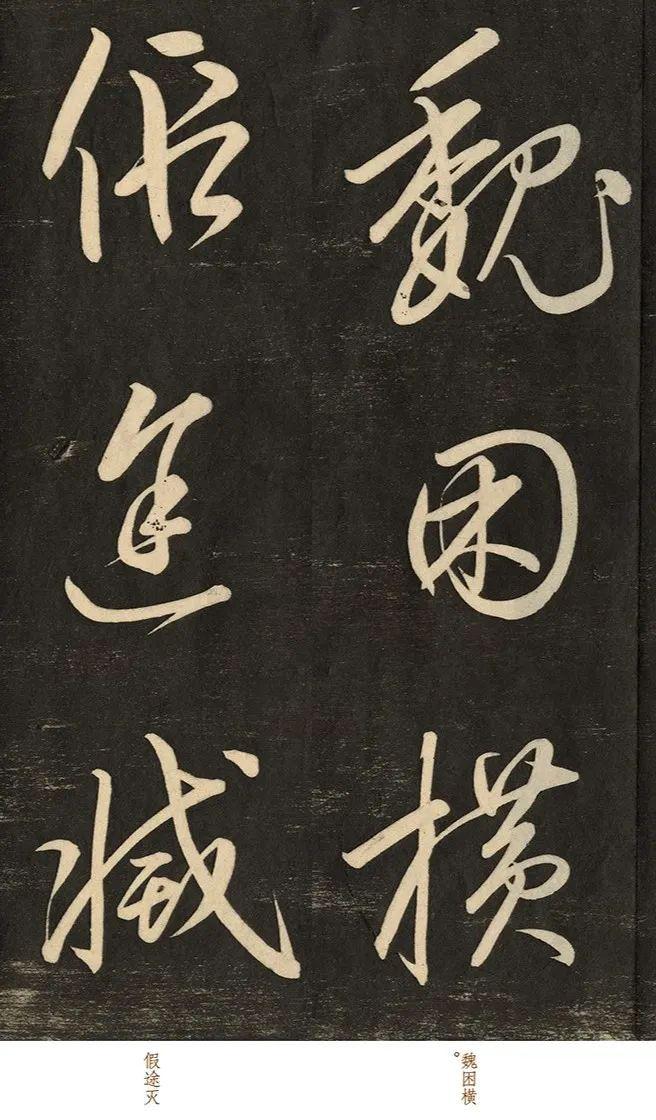 魏困橫
假途滅
魏困横。
假途灭